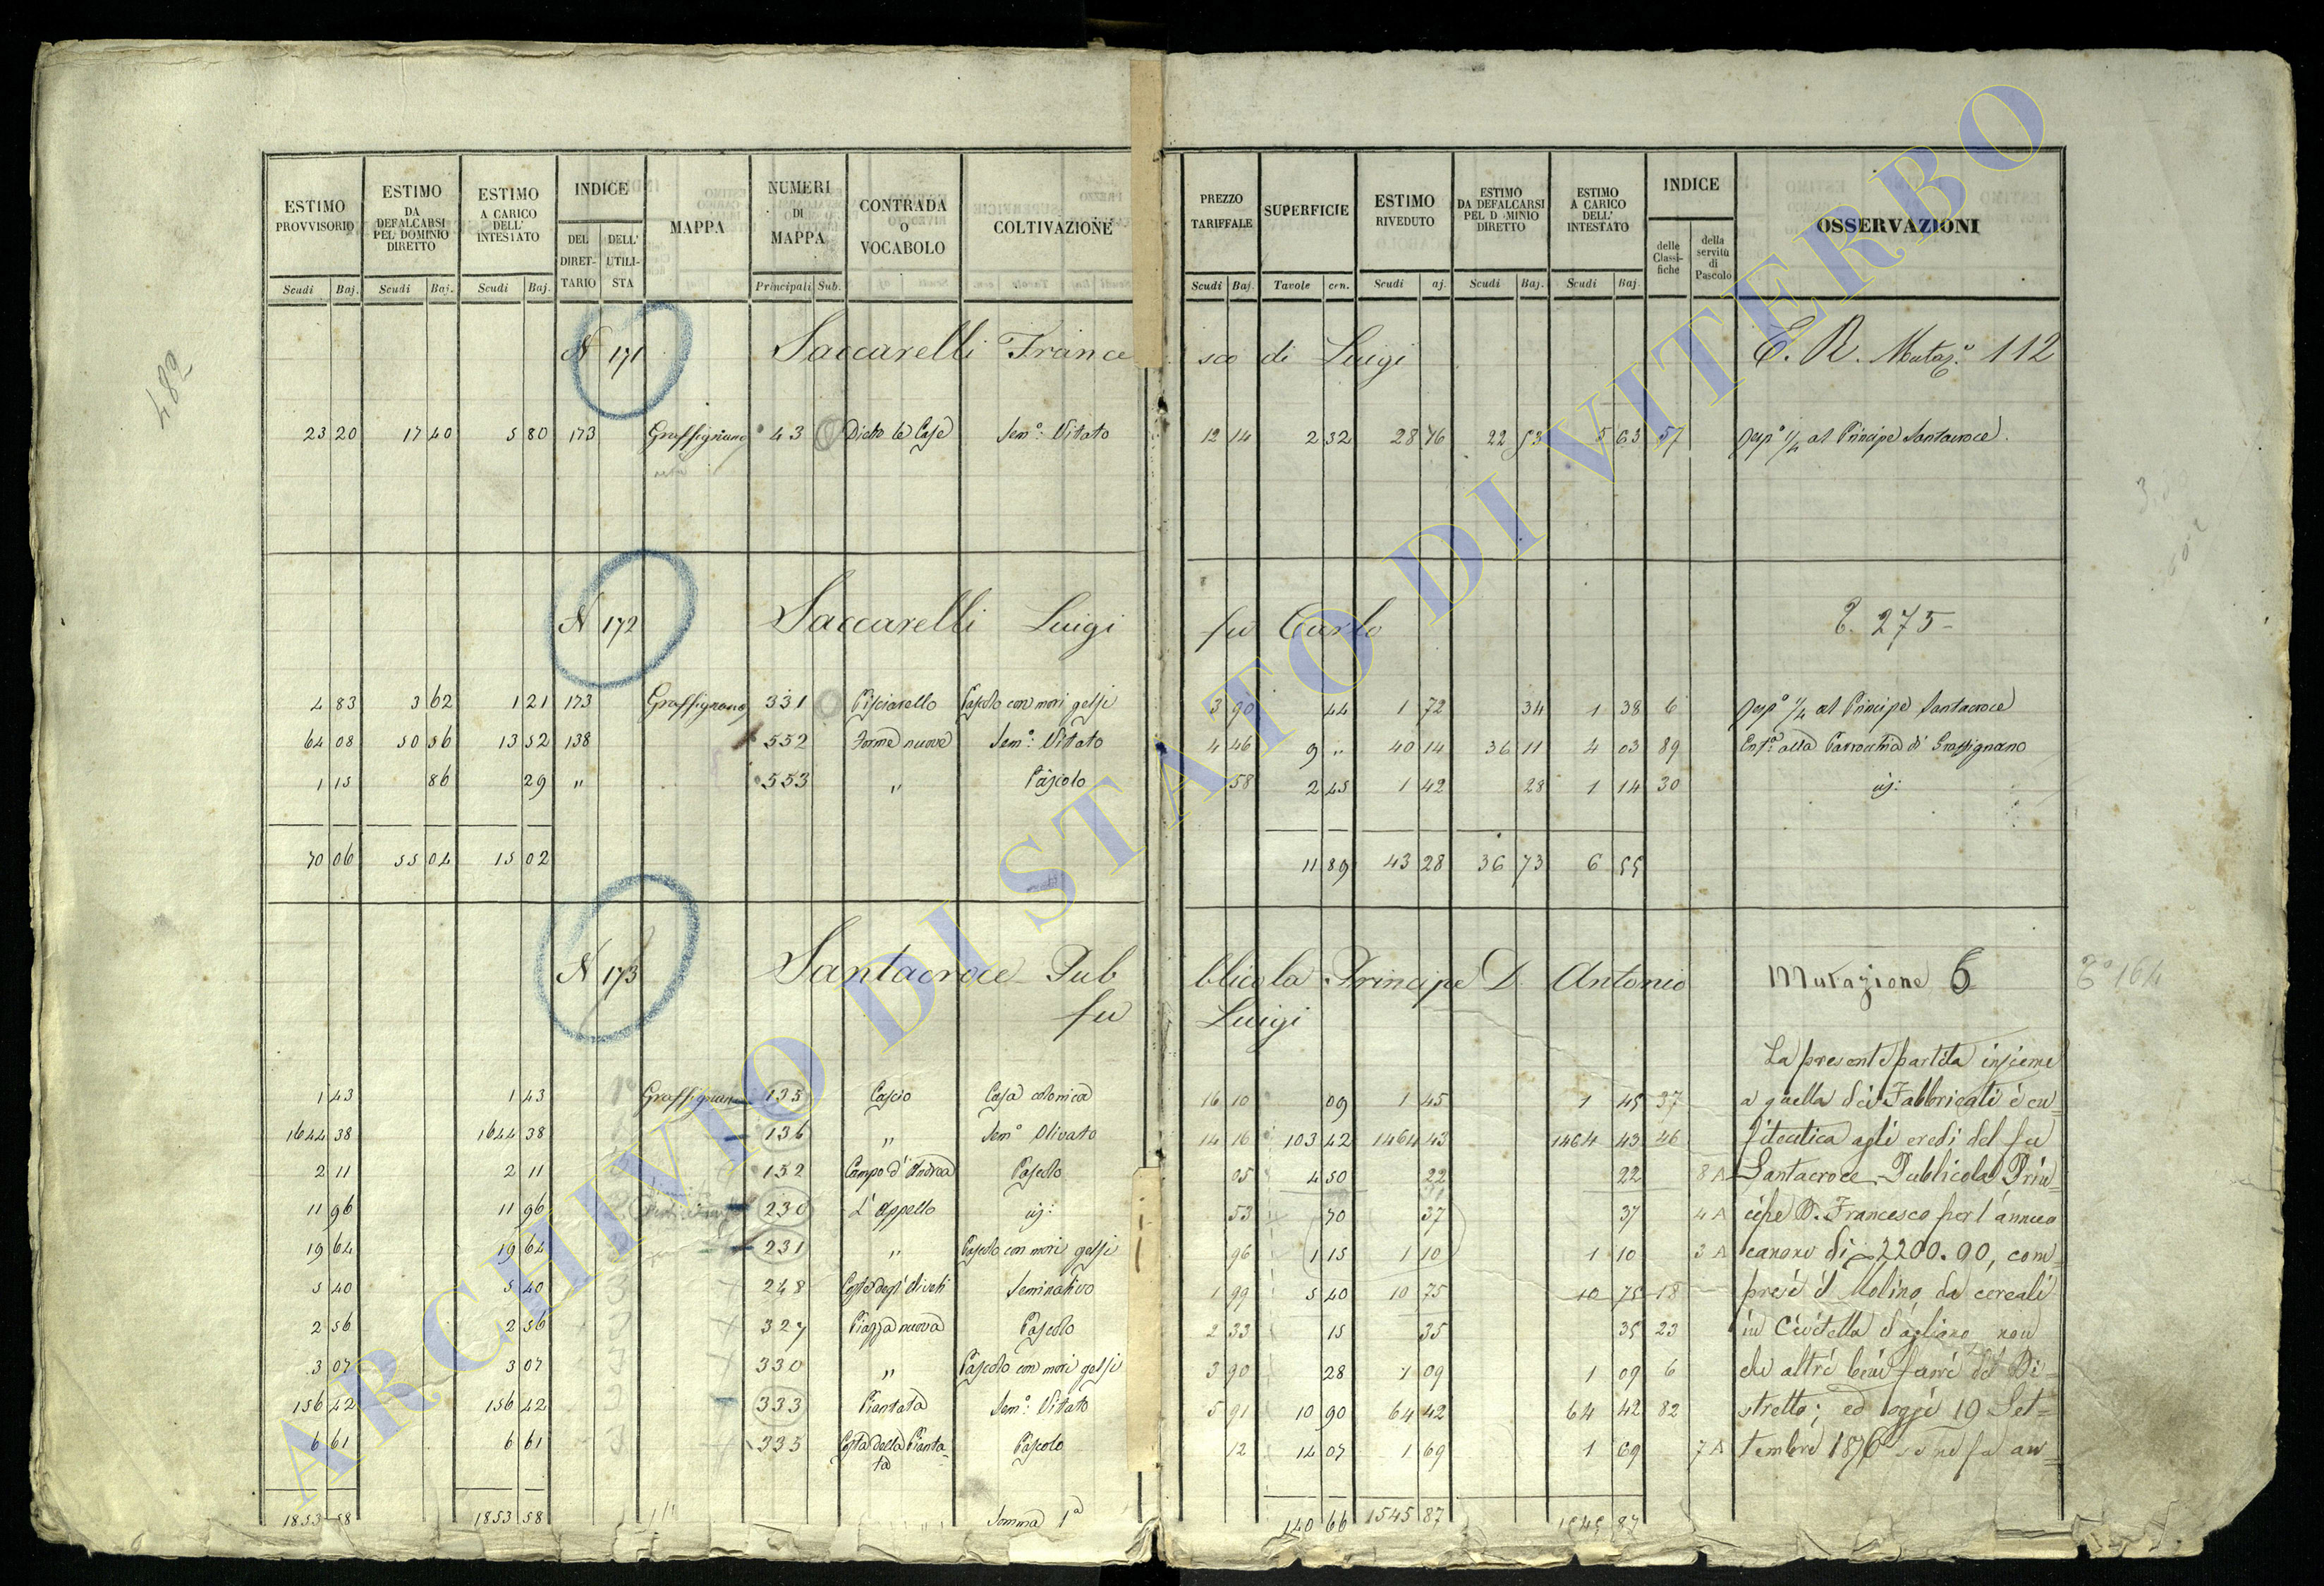 ESTIMO PROVVISORIO | ESTIMO DA DEFALCARSI PEL DOMINIO DIRETTO | ESTIMO A CARICO DELL' INTESTATO | INDICE DEL DIRETTARIO | DELL' UTILISTA | MAPPA | NUMERI DI MAPPA | CONTRADA O VOCABOLO | COLTIVAZIONE | PREZZO TARIFFALE | SUPERFICIE | ESTIMO RIVEDUTO | ESTIMO DA DEFALCARSI PEL D MINIO DIRETTO | ESTIMO A CARICO DELL' INTESTATO | INDICE delle Classifiche | della servitù di Pascolo | OSSERVAZIONI
Scudi Baj. Scudi Baj. Scudi Baj. Principali Sub. Scudi Baj. Tavole cen. Scudi aj. Scudi Baj. Scudi Baj.
N 171 Saccarelli Francesco di Luigi E. R. Mutaz.e 112
23 20 17 40 5 80 173 Graffignano 43 Dietro le Case Sem.o Vitato 12 14 2 32 28 76 22 53 5 63 57 Resp.o 1/4 al Principe Santacroce.
N 172 Saccarelli Luigi fu Carlo E. 275
4 83 3 62 1 21 173 Graffignano 331 Pisciarello Pascolo con mori gelsi 3 90 44 1 72 34 1 38 6 Resp.o 1/4 al Principe Santacroce
64 08 50 56 13 52 138 552 Forme nuove Sem.o Vitato 4 46 9 " 40 14 36 11 4 03 89 Enf.a alla Parrocchia di Graffignano
1 15 86 29 " 553 " Pascolo 58 2 45 1 42 28 1 14 30
70 06 55 04 15 02 11 89 43 28 36 73 6 55
N 173 Santacroce Pubblicola Principe D. Antonio Mutazione 6
fu Luigi
La presente partita insieme
1 43 1 43 Graffignano 135 Cascio Casa colonica 16 10 09 1 45 1 45 37 a quella dei Fabbricati è en=
1644 38 1644 38 136 " Sem.o Olivato 14 16 103 42 1464 43 1464 43 46 fiteutica agli eredi del fu
2 11 2 11 152 Campo d'Andrea Pascolo 05 4 50 22 22 8 A Santacroce Publicola Prin=
11 96 11 96 230 L'Appello 53 70 37 37 4 A cipe D. Francesco per l'annuo
19 64 19 64 231 " Pascolo con mori gelsi 96 1 15 1 10 1 10 3 A canone di 2200.90, com=
5 40 5 40 248 Costa degl'Oliveti Seminativo 1 99 5 40 10 75 10 75 18 presi il Molino da cereali
2 56 2 56 327 Piazza nuova Pascolo 2 33 15 35 35 23 in Civitella d'agliano, non
3 07 3 07 330 " Pascolo con mori gelsi 3 90 28 1 09 1 09 6 che altri beni fuori del Di=
156 42 156 42 333 Piantata Sem.o Vitato 5 91 10 90 64 42 64 42 82 stretto; ed oggi 19 Set=
6 61 6 61 335 Costa della Piantata Pascolo 12 14 07 1 69 1 69 7 A tembre 1876 se ne fa an=
1853 58 1853 58 Somma 1a 140 66 1545 87 1545 87
ARCHIVIO DI STATO DI VITERBO